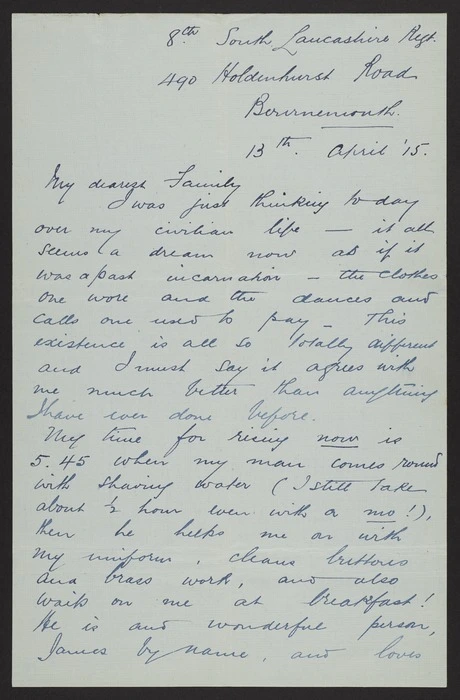 8th. South Lancashire Regt.
490 Holdenhurst Road
Bournemouth.
13th. April '15.
My dearest Family
I was just thinking to day
over my civilian life — it all
seems a dream now as if it
was a past incarnation — the clothes
one wore and the dances and
calls one used to pay — This
existence is all so totally different
and I must say it agrees with
me much better than anything
I have ever done before.
My time for rising now is
5.45 when my man comes round
with shaving water (I still take
about ½ hour even with a mo!),
then he helps me on with
my uniform, cleans buttons
and brass work, and also
waits on me at breakfast!
He is and wonderful person,
James by name, and loves